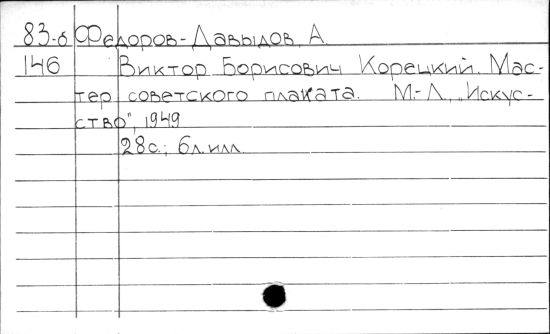 83-б Федоров-Давыдов, А.
146 Виктор Борисович Корецкий. Мас-
тер советского плаката. М.-Л., "Искус-
ство", 1949
28с.; 6л.илл.